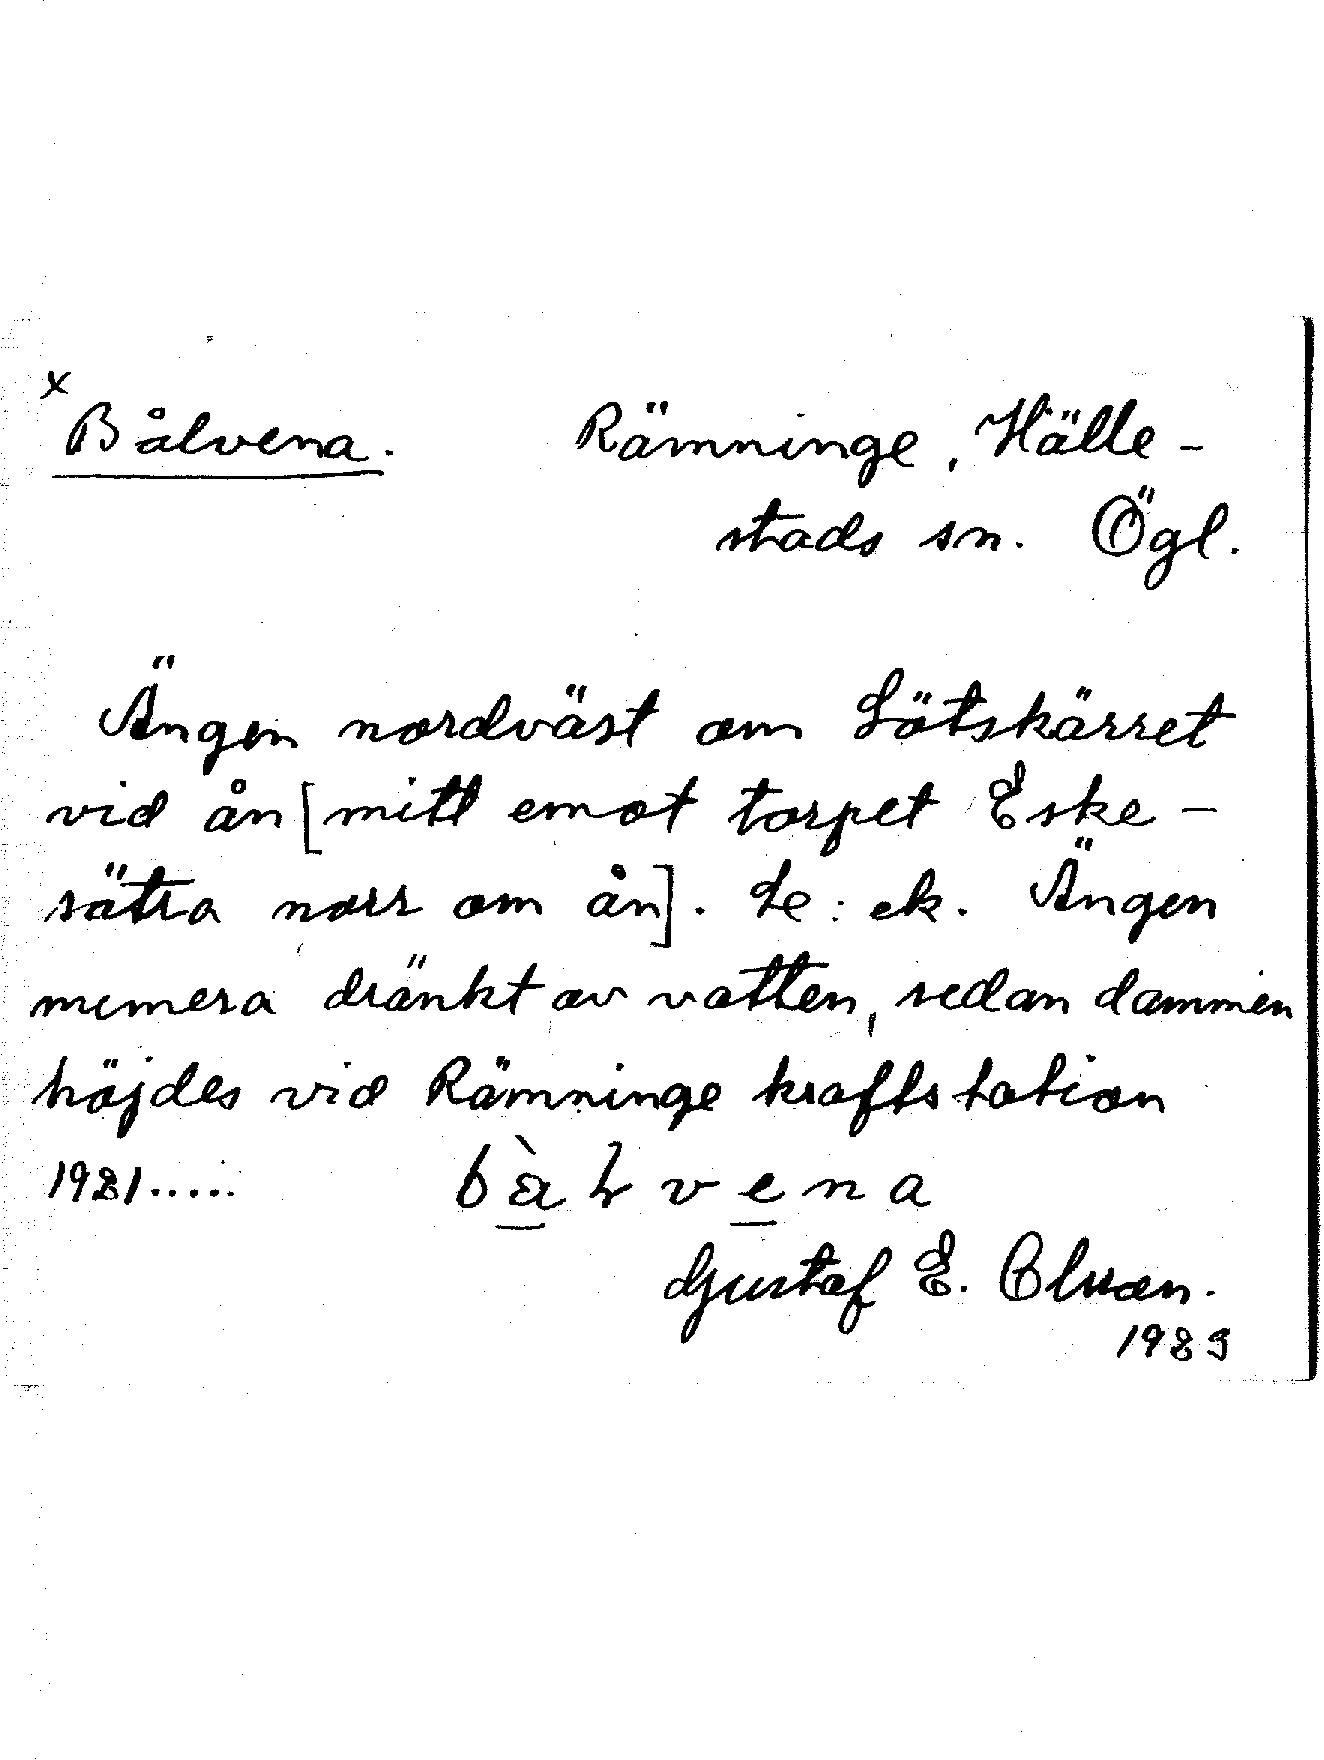 x
Bålvena. Rämninge, Hälle-
stads sn. Ögl.
Ängen nordväst om Lötskärret
vid ån [mitt emot torpet Eske-
sätra norr om ån]. Le: ek. Ängen
numera dränkt av vatten, sedan dammen
höjdes vid Rämninge kraftstation
1921.....
vena
Gustaf E. Olsson.
1929